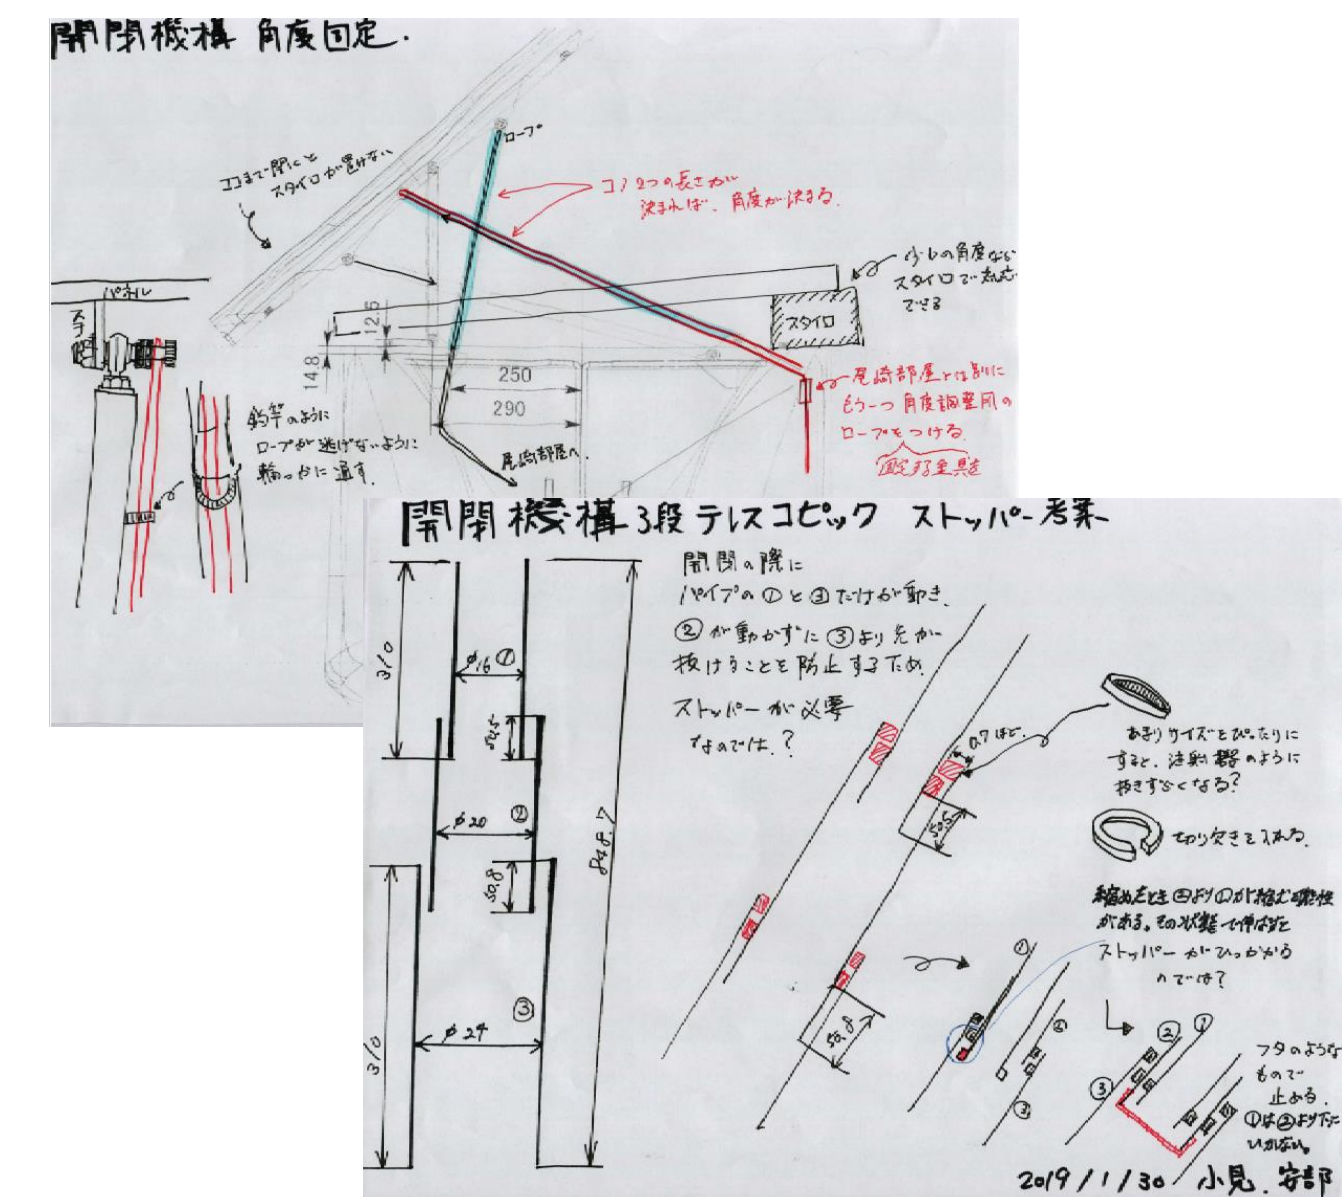 開閉機構 角度固定.
ロープ
ココまで開くと
スタイロが置けない
コノ2つの長さが
決まれば、角度が決まる.
少しの角度なら
スタイロで対応
できる
パネル
スタイロ
12.5
14.8
250
290
尾崎部屋へ.
釣竿のように
ロープが逃げないように
輪っかに通す.
尾崎部屋とは別に
もう一つ角度調整用の
ロープをつける.
固定する金具を
開閉機構 3段テレスコピック ストッパー考案
開閉の際に
パイプの①と③だけが動き、
②が動かずに③より先が
抜けることを防止するため
ストッパーが必要
なのでは.?
310
φ16 ①
φ20 ②
50.8
848.7
③
φ24
310
0.7ほど.
50.5
50.8
あまりサイズをぴったりに
すると、注射器のように
抜きずらくなる?
切り欠きを入れる.
縮めたとき②より①が縮む可能性
がある。その状態で伸ばすと
ストッパーがひっかかる
のでは?
①
②
③
②
①
③
フタのような
もので
止める.
①は②より下に
いかない。
2019/1/30 小見、安部